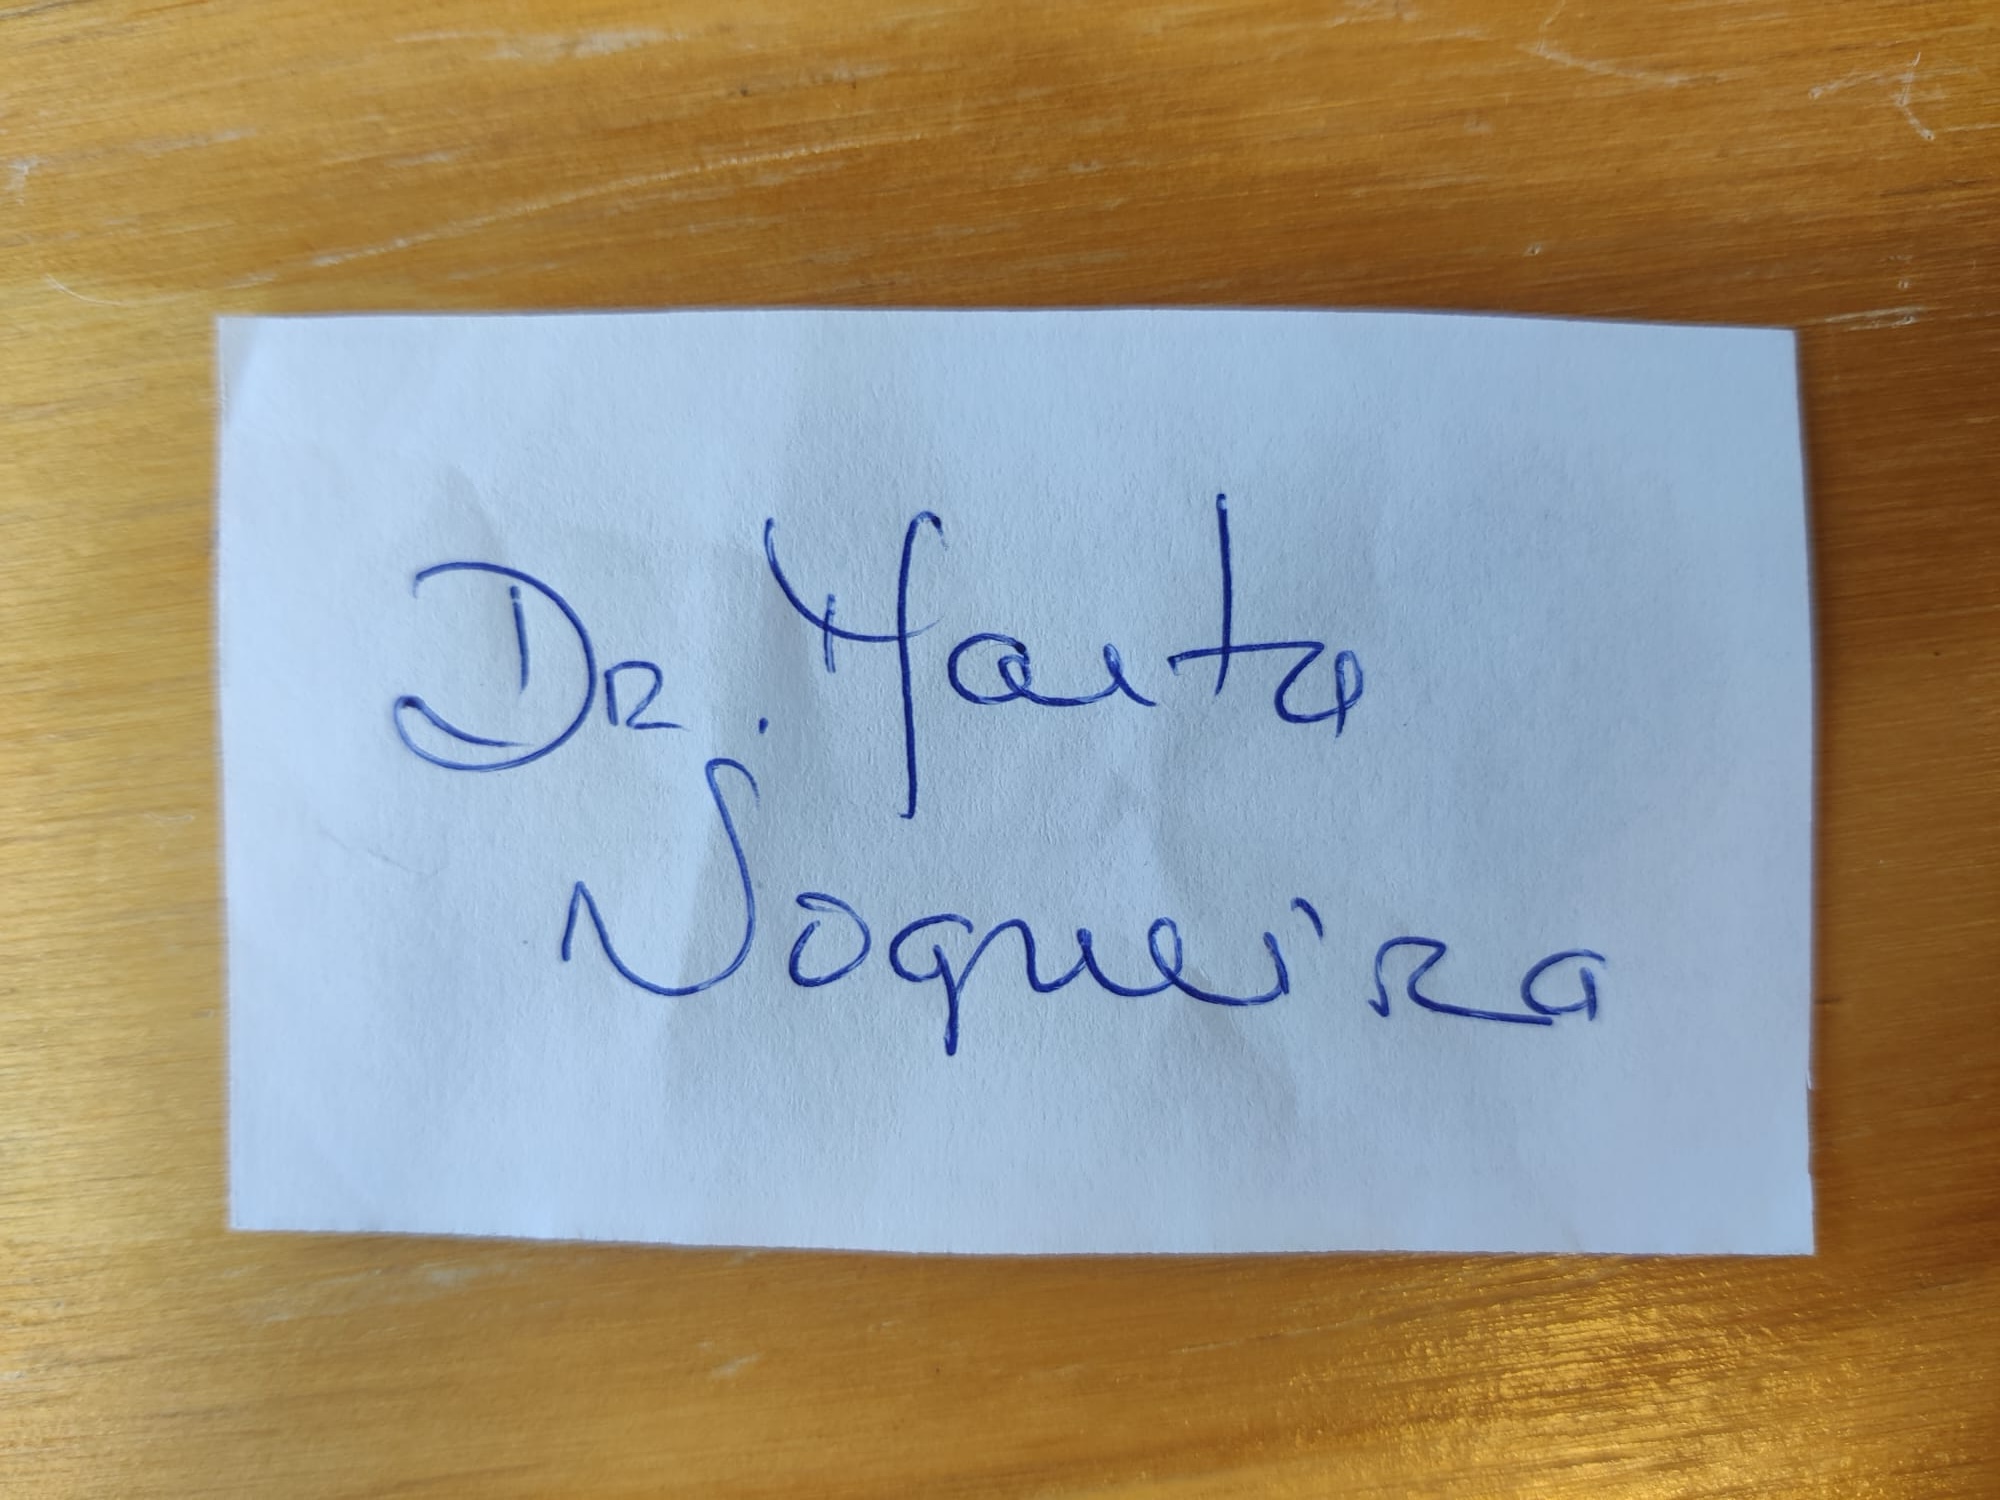 Dr. Marta
Nogueira